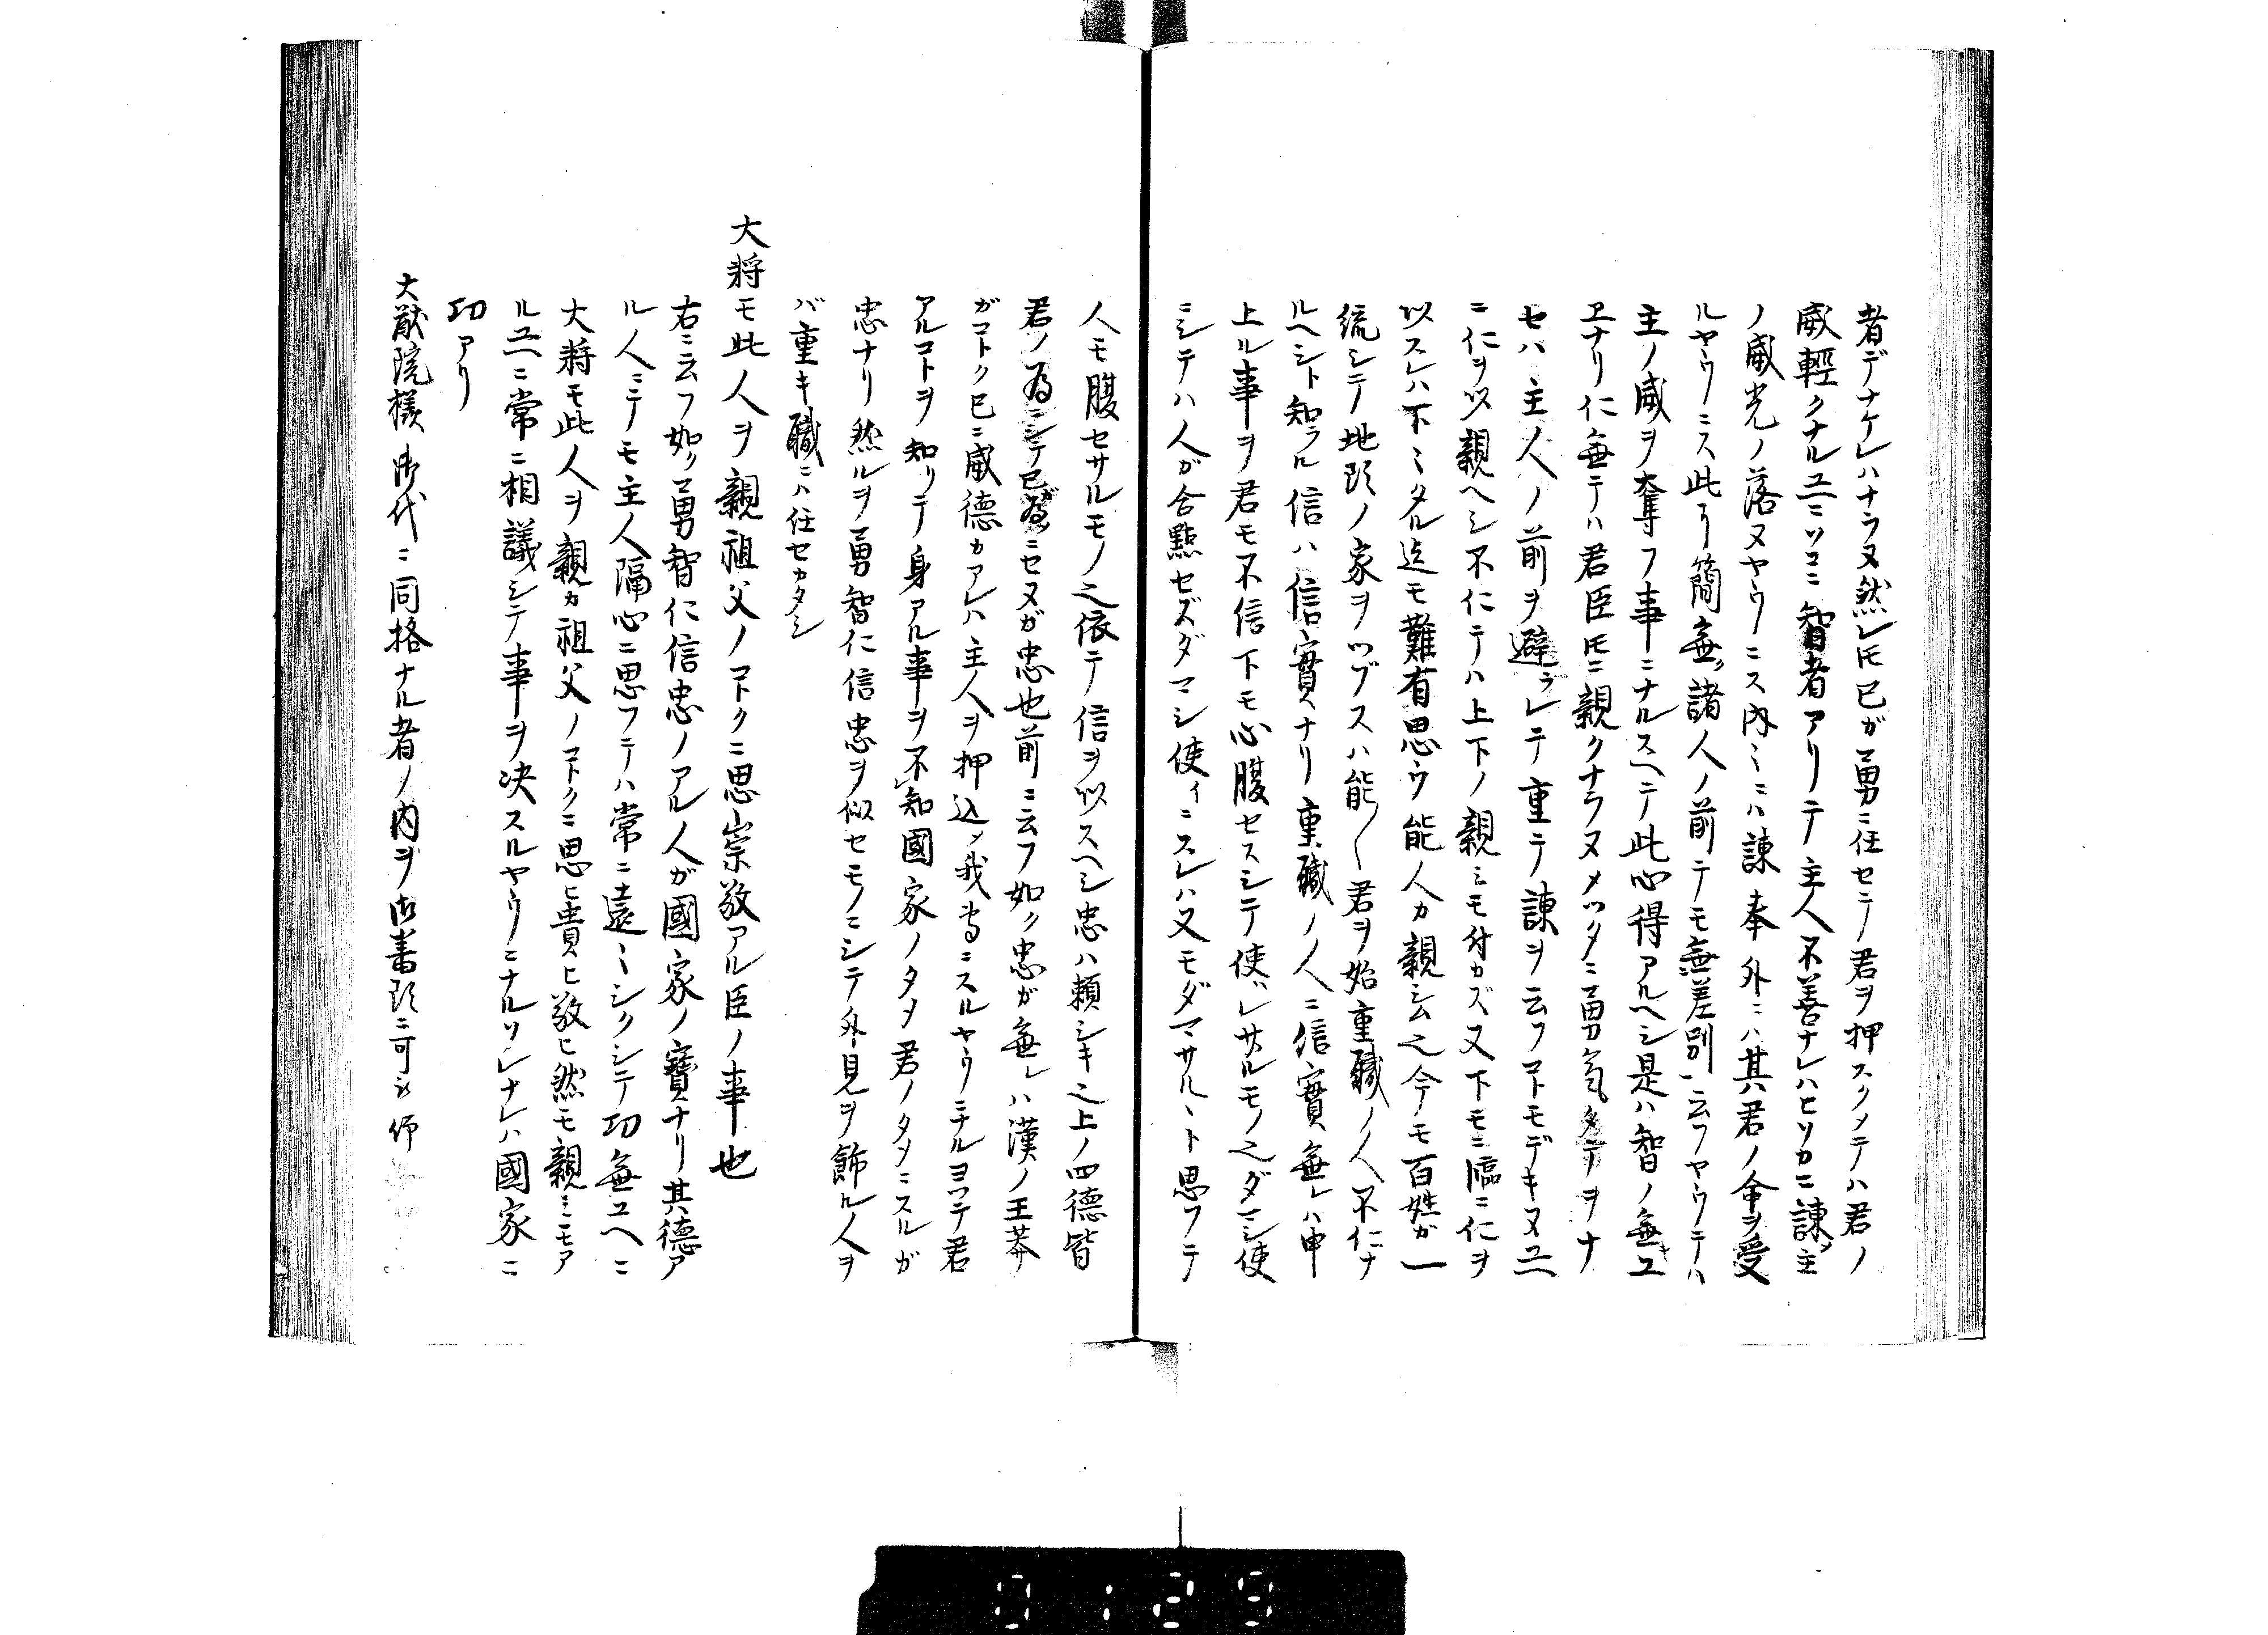 者デナケレハナラヌ然レ𪜈已ガ勇ニ任セテ君ヲ押スクメテハ君ノ
威輕クナルユヱニソコニ智者アリテ主人不善ナレハヒソカニ諌メ主
ノ威光ノ落ヌヤウニス内〻ニハ諌奉外ニハ其君ノ命ヲ受
ルヤウニス此了簡無ク諸人ノ前テモ無差別ニ云フヤウテハ
主ノ威ヲ奪フ事ニナルスヘテ此心得アルヘシ是ハ智ノ無キユ
ヱナリ仁無テハ君臣𪜈ニ親クナラヌメツタニ勇氣タテヲナ
セハ主人ノ前ヲ避ラレテ重テ諌ヲ云フコトモデキヌユヱ
ニ仁ヲ以親ヘシ不仁ニテハ上下ノ親ミモ付カズ又下モニ臨ニ仁ヲ
以スレハ下〻タル迄モ難有思ウ能人カ親シム之今モ百姓ガ一
統シテ地頭ノ家ヲツブスハ能〱君ヲ始重職ノ人不仁ナ
ルヘシト知ラル信ハ信實ナリ重職ノ人ニ信實無レハ申
上ル事ヲ君モ不信下モ心腹セスシテ使ハレサルモノ之ダマシ使
ニシテハ人ガ合點セズダマシ使イニスレハ又モダマサルヽト思フテ
人モ腹セサルモノ之依テ信ヲ以スヘシ忠ハ頼シキ之上ノ四德皆
君ノ為ニシテ已ガ為ニセヌガ忠也前ニ云フ如ク忠ガ無レハ漢ノ王莽
ガコトク已ニ威德カアレハ主人ヲ押込メ我侭ニスルヤウニナルヨツテ君
アルコトヲ知リテ身アル事ヲ不レ知國家ノタメ君ノタメニスルガ
忠ナリ然ルヲ勇智仁信忠ヲ似セモノニシテ外見ヲ飾ル人ヲ
バ重キ職ニハ任セカタシ
大將モ此人ヲ親祖父ノコトクニ思崇敬アル臣ノ事也
右ニ云フ如ク勇智仁信忠ノアル人ガ國家ノ寶ナリ其德ア
ル人ニテモ主人隔心ニ思フテハ常ニ遠〻シクシテ功無ユヘニ
大將モ此人ヲ親カ祖父ノコトクニ思ヒ貴ヒ敬ヒ然モ親ミモア
ルユヱニ常ニ相議シテ事ヲ决スルヤウニナルソレナレハ國家ニ
功アリ
大猷院樣御代ニ同格ナル者ノ内ヲ御番頭ニ可被仰